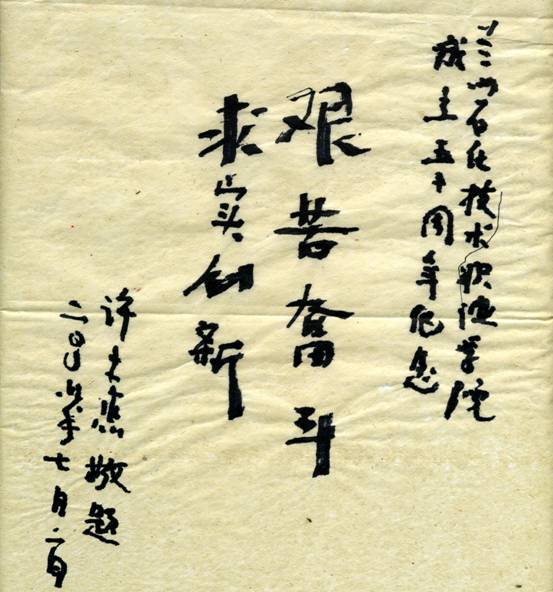 兰州石化技术职业学院
成立五十周年纪念
艰苦奋斗
求实创新
许敬题
二00六年七月二日